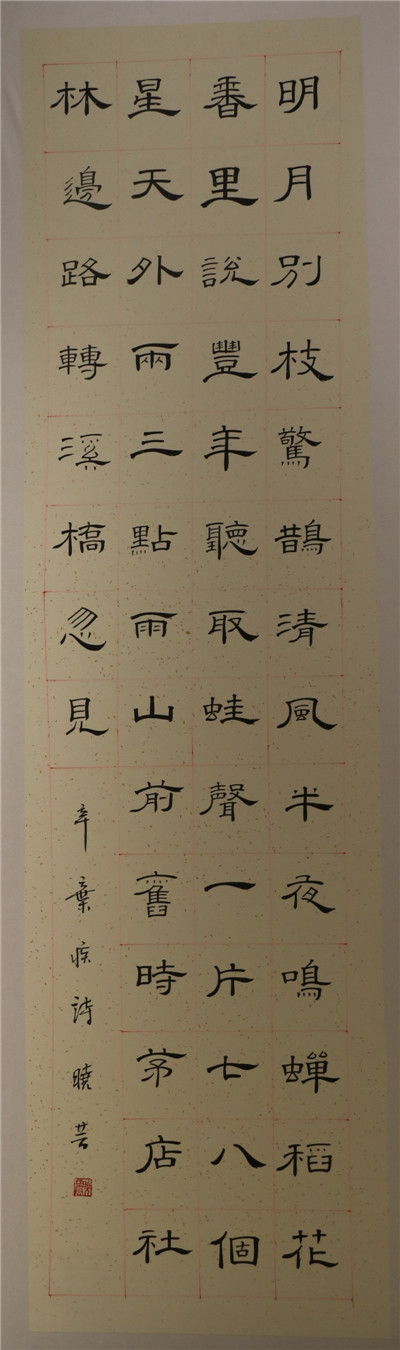 明月別枝驚鵲清風半夜鳴蟬稻花
香里說豐年聽取蛙聲一片七八個
星天外兩三點雨山前舊時茅店社
林邊路轉溪橋忽見
辛棄疾詩 曉